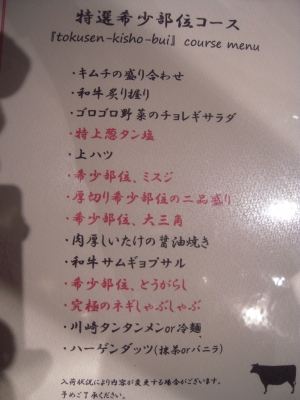 特選希少部位コース
『tokusen-kisho-bui』 course menu
・キムチの盛り合わせ
・和牛炙り握り
・ゴロゴロ野菜のチョレギサラダ
・特上葱タン塩
・上ハツ
・希少部位、ミスジ
・厚切り希少部位の二品盛り
・希少部位、大三角
・肉厚しいたけの醤油焼き
・和牛サムギョプサル
・希少部位、とうがらし
・究極のネギしゃぶしゃぶ
・川崎タンタンメンor冷麺
・ハーゲンダッツ(抹茶orバニラ)
入荷状況により内容が変更する場合がございます。
予めご了承ください。